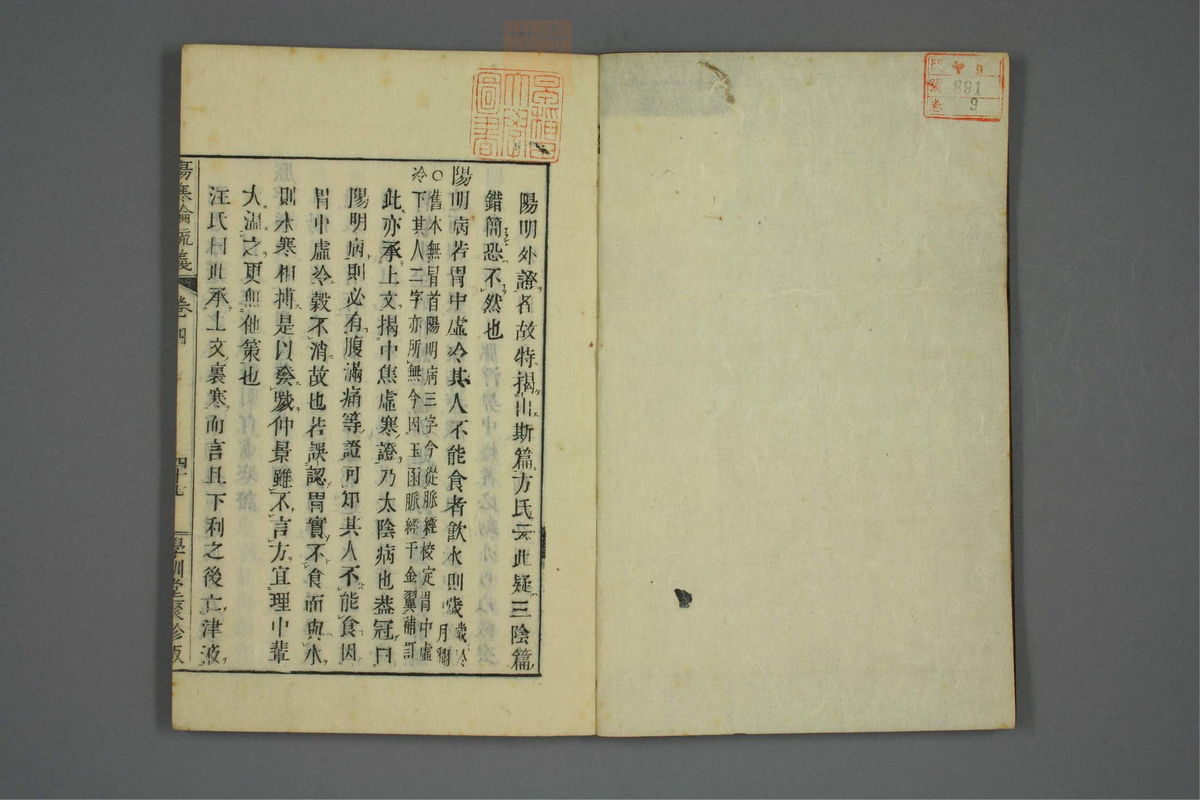 門 9
號 891
卷 9
早稻田大學圖書
陽明外證者故特揭出斯篇方氏云此疑三陰篇
錯簡恐不然也
陽明病若胃中虛冷其人不能食者飲水則噦
○舊本無胃首陽明病三字今從脈經校定胃中虛
冷下其人二字亦所無今因玉函脈經千金翼補訂
此亦承上文揭中焦虛寒證乃太陰病也蓋冠曰
陽明病則必有腹滿痛等證可知其人不能食因
胃中虛冷穀不消故也若誤認胃實不食而與水
則水寒相搏是以發噦仲景雖不言方宜理中輩
大溫之更無他策也
汪氏曰此承上文裏寒而言且下利之後亡津液
傷寒論疏義 卷四 四十七 學訓堂聚珍版